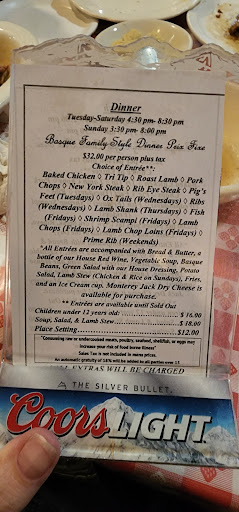 Dinner
Tuesday-Saturday 4:30 pm- 8:30 pm
Sunday 3:30 pm- 8:00 pm
Basque Family Style Dinner Prix Fixe
$32.00 per person plus tax
Choice of Entrée**:
Baked Chicken ◊ Tri Tip ◊ Roast Lamb ◊ Pork
Chops ◊ New York Steak ◊ Rib Eye Steak ◊ Pig's
Feet (Tuesdays) ◊ Ox Tails (Wednesdays) ◊ Ribs
(Wednesdays) ◊ Lamb Shank (Thursdays) ◊ Fish
(Fridays) ◊ Shrimp Scampi (Fridays) ◊ Lamb
Chops (Fridays) ◊ Lamb Chop Loins (Fridays) ◊
Prime Rib (Weekends)
*All Entrées are accompanied with Bread & Butter, a
bottle of our House Red Wine, Vegetable Soup, Basque
Beans, Green Salad with our House Dressing, Potato
Salad, Lamb Stew (Chicken & Rice on Sundays), Fries,
and an Ice Cream cup. Monterey Jack Dry Cheese is
available for purchase.
** Entrées are available until Sold Out
Children under 12 years old: $ 16.00
Soup, Salad, & Lamb Stew $ 18.00
Place Setting $12.00
*Consuming raw or undercooked meats, poultry, seafood, shellfish, or eggs may
increase your risk of food borne illness*
Sales Tax is not included in menu prices.
An automatic gratuity of 18% will be added to all parties over
EXTRAS WILL BE CHARGED
THE SILVER BULLET
Coors LIGHT